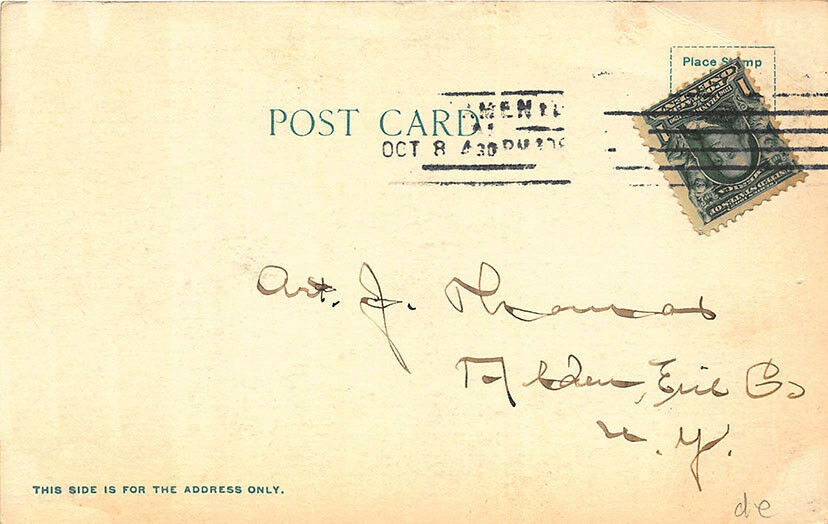 Place Stamp
POST CARD
OCT 8 430 PM
Art. J. Thomas
Alden, Erie Co
N.Y.
THIS SIDE IS FOR THE ADDRESS ONLY.
de